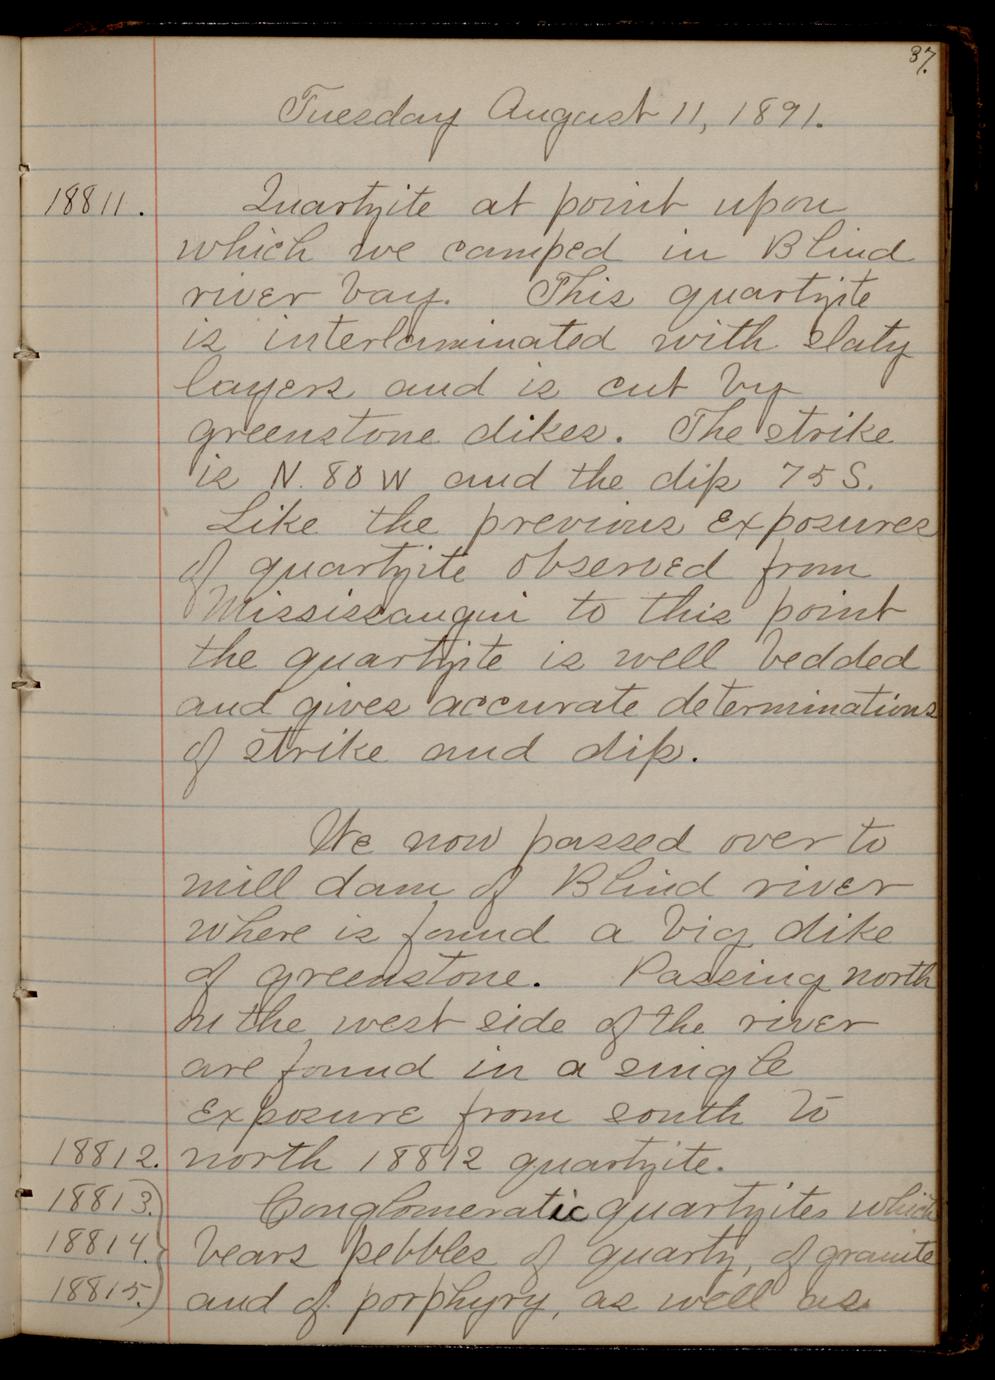 37.
Tuesday August 11, 1891.
18811. Quartzite at point upon
which we camped in Blind
river bay. This quartzite
is interlaminated with slaty
layers and is cut by
greenstone dikes. The strike
is N. 80 W and the dip 75 S.
Like the previous exposures
of quartzite observed from
Mississaugui to this point
the quartzite is well bedded
and gives accurate determinations
of strike and dip.
We now passed over to
mill dam of Blind river
where is found a big dike
of greenstone. Passing north
on the west side of the river
are found in a single
exposure from south to
18812. north 18812 quartzite.
18813. Conglomeratic quartzites which
18814. bears pebbles of quartz, of granite
18815. and of porphyry, as well as